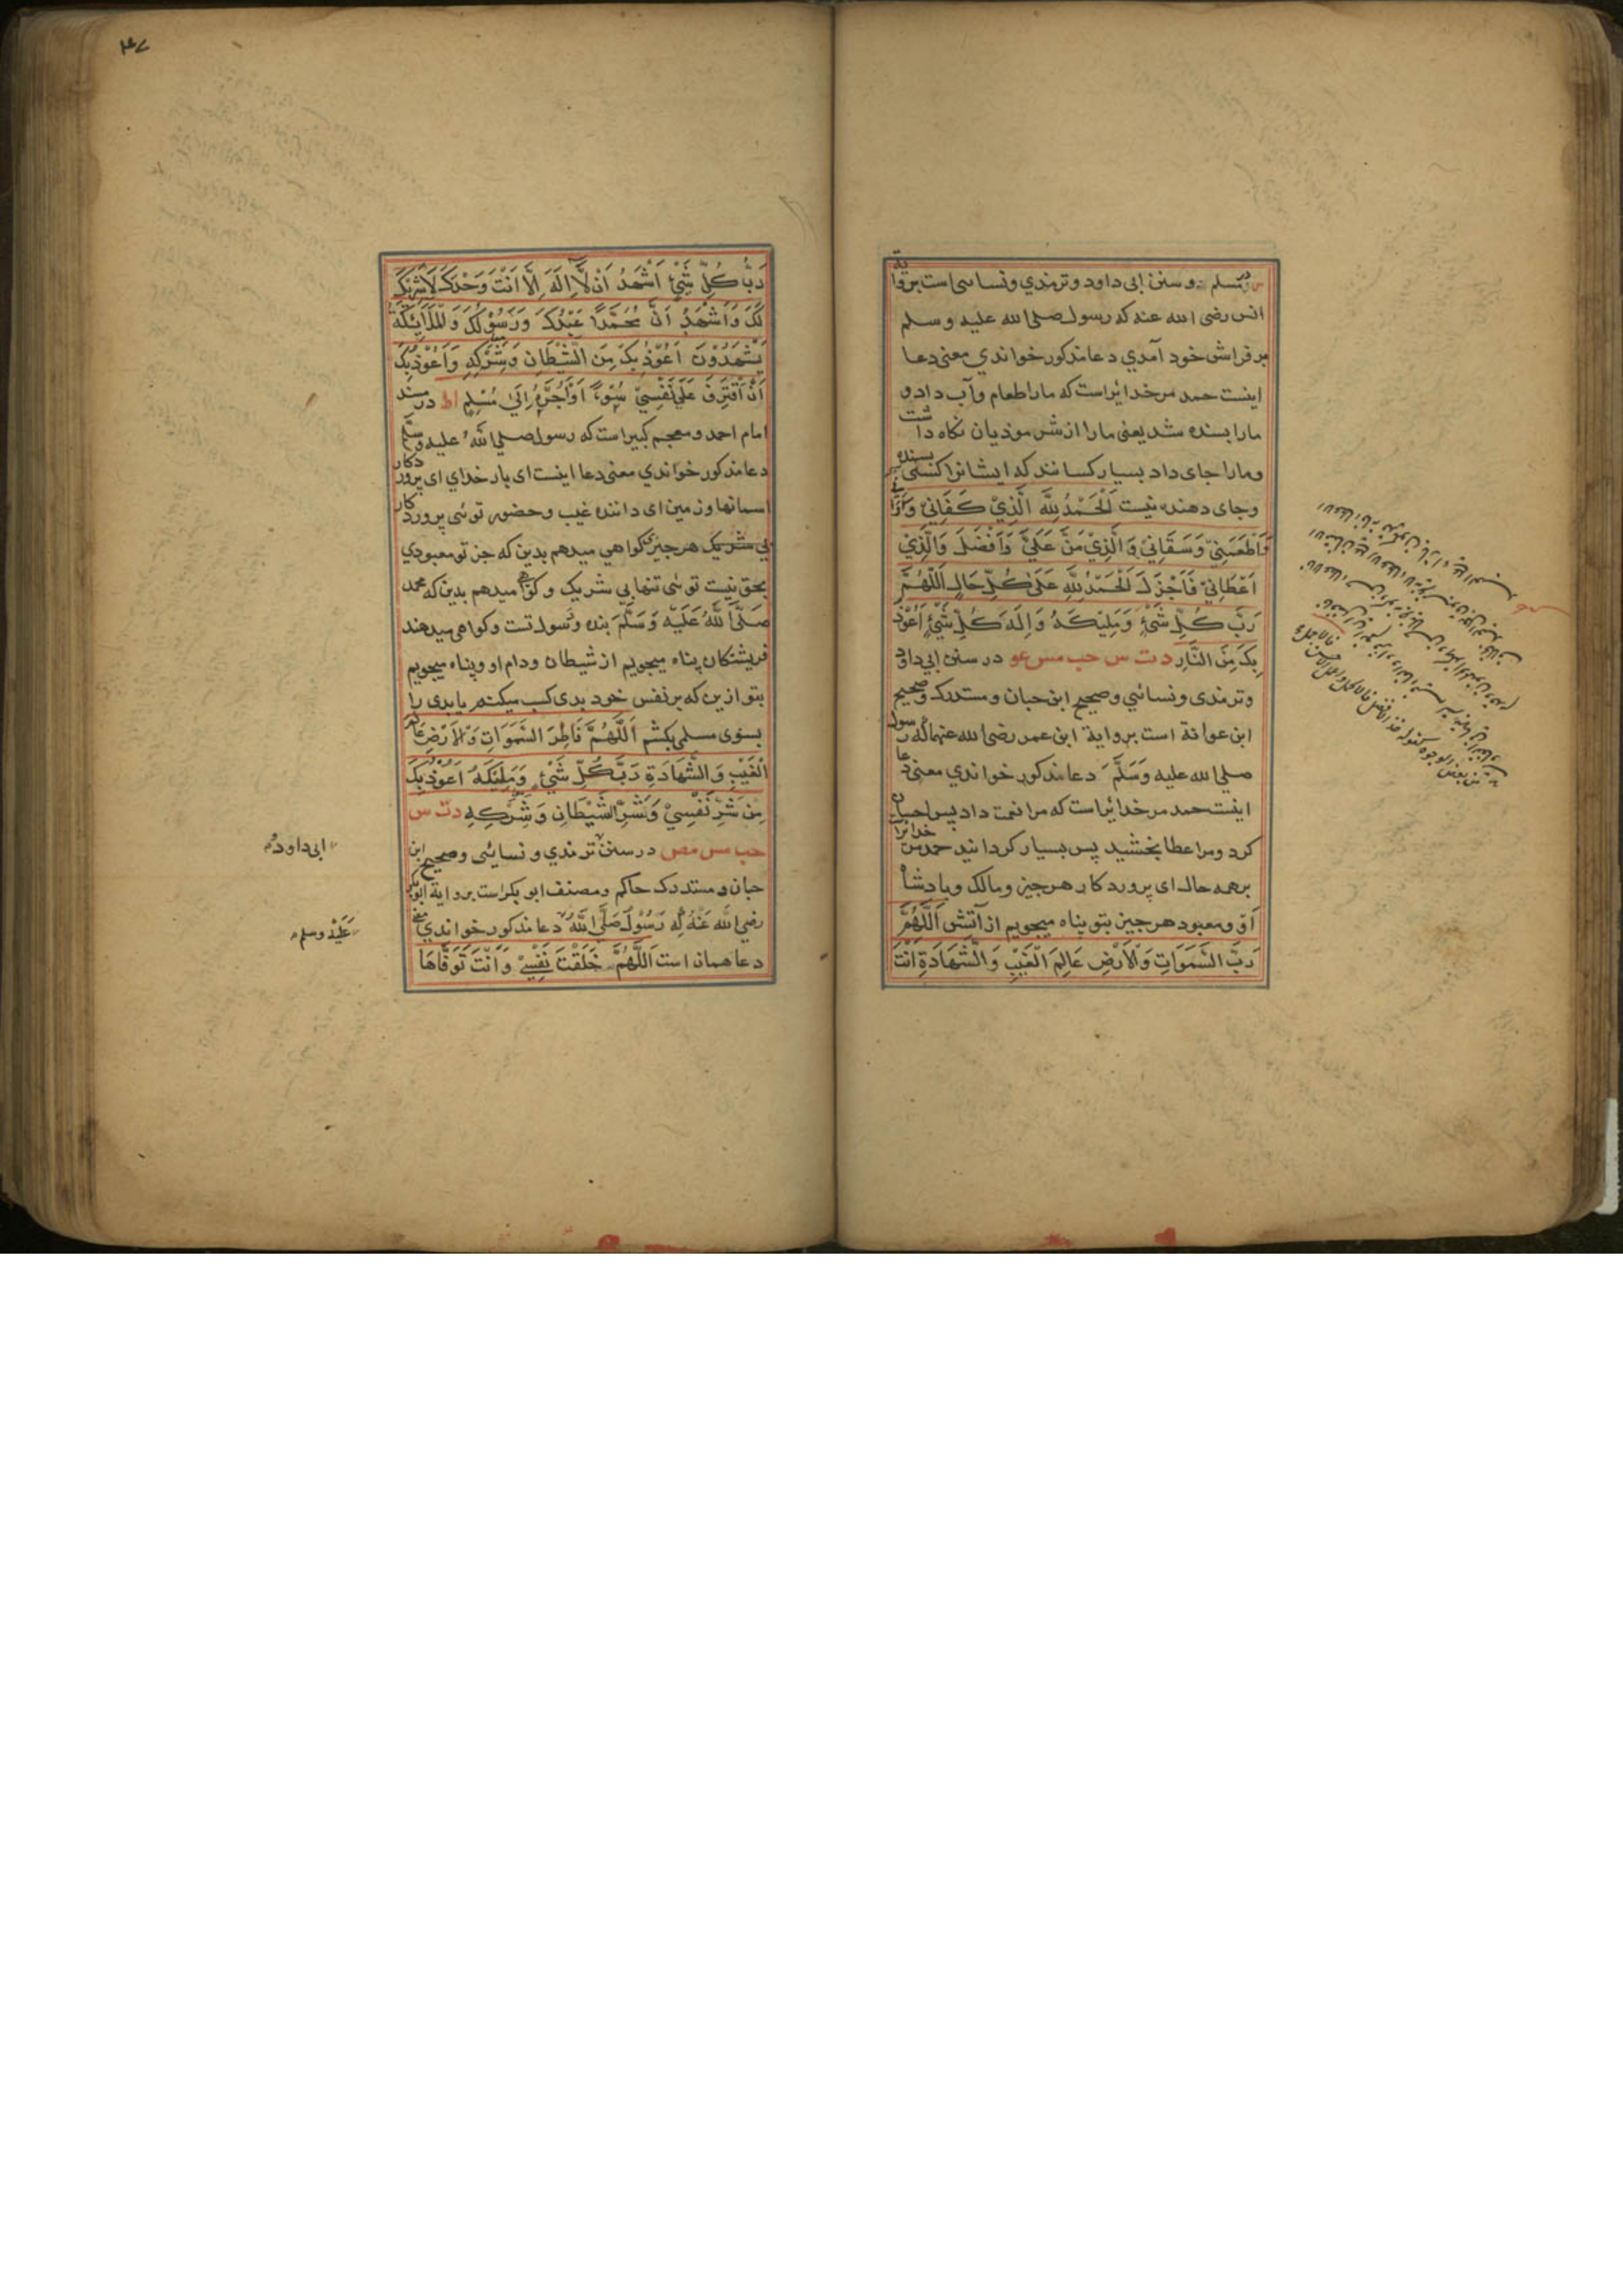 مسلم و سنن ابی داود و ترمذي و نسائی است بروایة
انس رضی الله عنه که رسول صلی الله علیه و سلم
بر فراش خود آمدي دعا مذکور خواندي معنی دعا
اینست حمد مر خدایراست که مارا طعام و آب داد و
مارا بسنده شد یعنی مارا از شر موذیان نکاه داشت
و مارا جای داد بسیار کسانند که ایشانرا بسنده
و جای دهنده نیست اَلْحَمْدُ لِلّٰهِ الَّذِيْ كَفَانِيْ وَاٰوَانِيْ
وَاَطْعَمَنِيْ وَسَقَانِيْ وَالَّذِيْ مَنَّ عَلَيَّ وَاَفْضَلَ وَالَّذِيْ
اَعْطَانِيْ فَاَجْزَلَ اَلْحَمْدُ لِلّٰهِ عَلٰى كُلِّ حَالٍ اَللّٰهُمَّ
رَبَّ كُلِّ شَيْءٍ وَمَلِيْكَهُ وَاِلٰهَ كُلِّ شَيْءٍ اَعُوْذُ
بِكَ مِنَ النَّارِ دت س حب مس عو در سنن ابی داود
و ترمذی و نسائي و صحیح ابن حبان و مستدرک و صحیح
ابن عوانة است بروایة ابن عمر رضی الله عنهما که رسول
صلی الله علیه وَسَلَّمَ دعا مذکور خواندي معنی دعا
اینست حمد مر خدایراست که مرا نعمت داد پس احسان
کرد و مرا عطا بخشید پس بسیار کردانید حمد مر خدایرا
بر همه حال ای پروردکار هر چیز و مالک و پادشاه
او و معبود هر چیز بتو پناه میجویم از آتش اَللّٰهُمَّ
رَبَّ السَّمَوَاتِ وَالْاَرْضِ عَالِمَ الْغَيْبِ وَالشَّهَادَةِ اَنْتَ
۴۷
رَبُّ كُلِّ شَيْءٍ اَشْهَدُ اَنْ لَّا اِلٰهَ اِلَّا اَنْتَ وَحْدَكَ لَاشَرِيْكَ
لَكَ وَاَشْهَدُ اَنَّ مُحَمَّدًا عَبْدُكَ وَرَسُوْلُكَ وَالْمَلَائِكَةُ
يَشْهَدُوْنَ اَعُوْذُ بِكَ مِنَ الشَّيْطَانِ وَشِرْكِهِ وَاَعُوْذُ بِكَ
اَنْ اَقْتَرِفَ عَلٰى نَفْسِيْ سُوْءً اَوْ اَجُرَّهُ اِلٰى مُسْلِمٍ اط در مسند
امام احمد و معجم کبیر است که رسول صلی اللّٰهُ علیه وسلم
دعا مذکور خواندي معنی دعا اینست ای بار خدای ای پروردکار
اسمانها و زمین ای داننده غیب و حضور توئی پروردکار
بي شریک هر چیز کواهي میدهم بدین که جز تو معبودي
بحق نیست توئی تنها بي شریک و کواهی میدهم بدین که محمد
صَلَّى اللّٰهُ عَلَيْهِ وَسَلَّمَ بنده و رسول تست و کواهی میدهند
فریشتکان پناه میجویم از شیطان و دام او و پناه میجویم
بتو ازین که بر نفس خود بدی کسب میکنم یا بدی را
بسوی مسلمی بکشم اَللّٰهُمَّ فَاطِرَ السَّمَوَاتِ وَالْاَرْضِ عَالِمَ
الْغَيْبِ وَالشَّهَادَةِ رَبَّ كُلِّ شَيْءٍ وَمَلِيْكَهُ اَعُوْذُ بِكَ
مِنْ شَرِّ نَفْسِيْ وَشَرِّ الشَّيْطَانِ وَشِرْكِهِ دت س
حب مس مص در سنن ترمذي و نسایئی و صحیح ابن
حبان و مستدرک حاکم و مصنف ابو بکر است بروایة ابوبکر
رضي الله عَنْهُ که رَسُوْلَ صَلَّى اللّٰهُ دعا مذکور خواندي معنی
دعا همان است اَللّٰهُمَّ خَلَقْتَ نَفْسِيْ وَاَنْتَ تَوَفَّاهَا
ابی داود
عَلَيْهِ وسلم